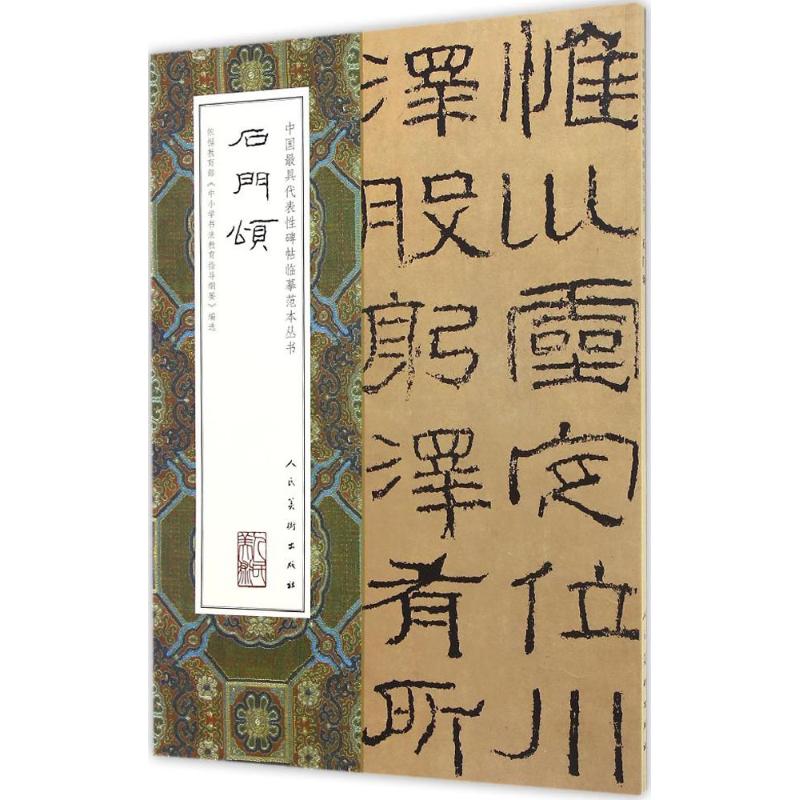 惟坤靈定位川
澤股躬澤有所
中国最具代表性碑帖临摹范本丛书
石門頌
依据教育部《中小学书法教育指导纲要》编选
人民美術出版社